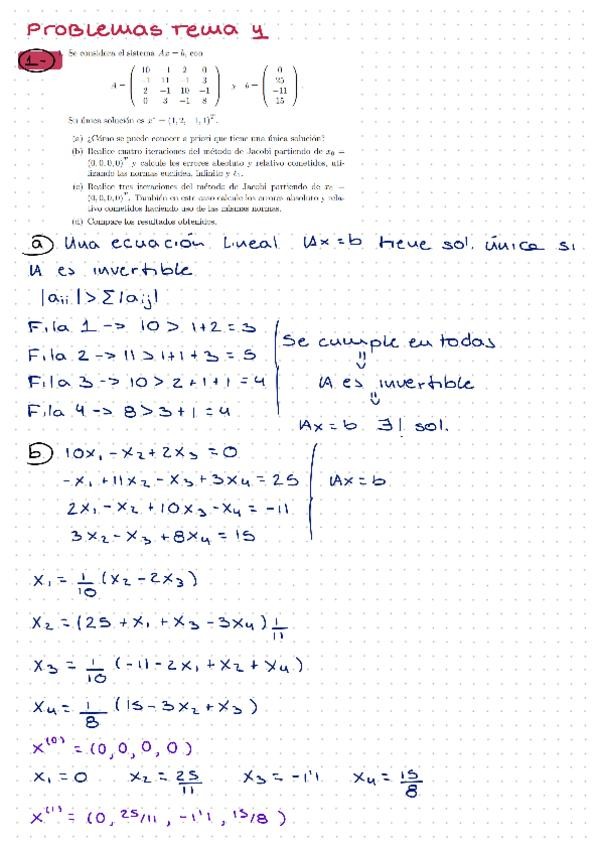 Problemas Tema 4
1.-
Se considera el sistema Ax = b, con
A = ( 10 -1 2 0
-1 11 -1 3
2 -1 10 -1
0 3 -1 8 ) y b = ( 0
25
-11
15 )
Su única solución es x* = (1, 2, -1, 1)^T.
(a) ¿Cómo se puede conocer a priori que tiene una única solución?
(b) Realice cuatro iteraciones del método de Jacobi partiendo de x₀ =
(0,0,0,0)^T y calcule los errores absoluto y relativo cometidos, uti-
lizando las normas euclídea, infinito y ℓ₁.
(c) Realice tres iteraciones del método de Jacobi partiendo de x₀ =
(0,0,0,0)^T. También en este caso calcule los errores absoluto y rela-
tivo cometidos haciendo uso de las mismas normas.
(d) Compare los resultados obtenidos.
a) Una ecuación lineal Ax=b tiene sol. única si
A es invertible
|aii| > Σ|aij|
Fila 1 -> 10 > 1+2 = 3
Fila 2 -> 11 > 1+1+3 = 5
Fila 3 -> 10 > 2+1+1 = 4
Fila 4 -> 8 > 3+1 = 4
Se cumple en todas
⇓
A es invertible
⇓
Ax=b ∃! sol.
b) 10x₁ - x₂ + 2x₃ = 0
-x₁ + 11x₂ - x₃ + 3x₄ = 25
2x₁ - x₂ + 10x₃ - x₄ = -11
3x₂ - x₃ + 8x₄ = 15
Ax=b
x₁ = 1/10 (x₂ - 2x₃)
x₂ = (25 + x₁ + x₃ - 3x₄) 1/11
x₃ = 1/10 (-11 - 2x₁ + x₂ + x₄)
x₄ = 1/8 (15 - 3x₂ + x₃)
x⁽⁰⁾ = (0, 0, 0, 0)
x₁ = 0 x₂ = 25/11 x₃ = -1'1 x₄ = 15/8
x⁽¹⁾ = (0, 25/11, -1'1, 15/8)